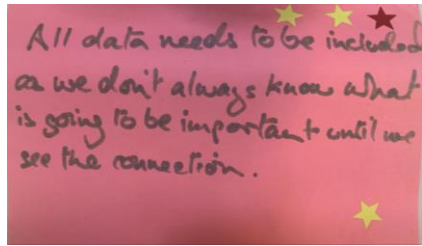 All data needs to be included
as we don't always know what
is going to be important until we
see the connection.